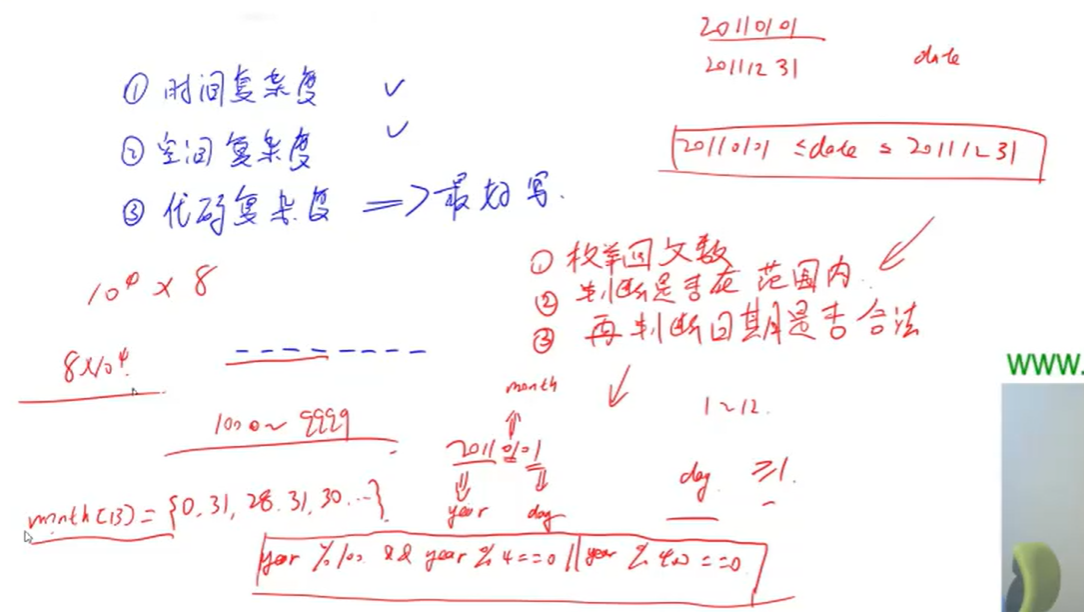 20110101
20111231
date
① 时间复杂度 ✓
② 空间复杂度 ✓
③ 代码复杂度 => 最好写.
20110101 ≤ date ≤ 20111231
① 枚举回文数
② 判断是否在范围内
③ 再判断日期是否合法
10^4 × 8
8×10^4
1000~9999
month
20110101
year
day
1~12.
day ≥1.
month[13] = {0, 31, 28, 31, 30 ...}
year % 100 && year % 4 ==0 || year % 400 ==0
www.